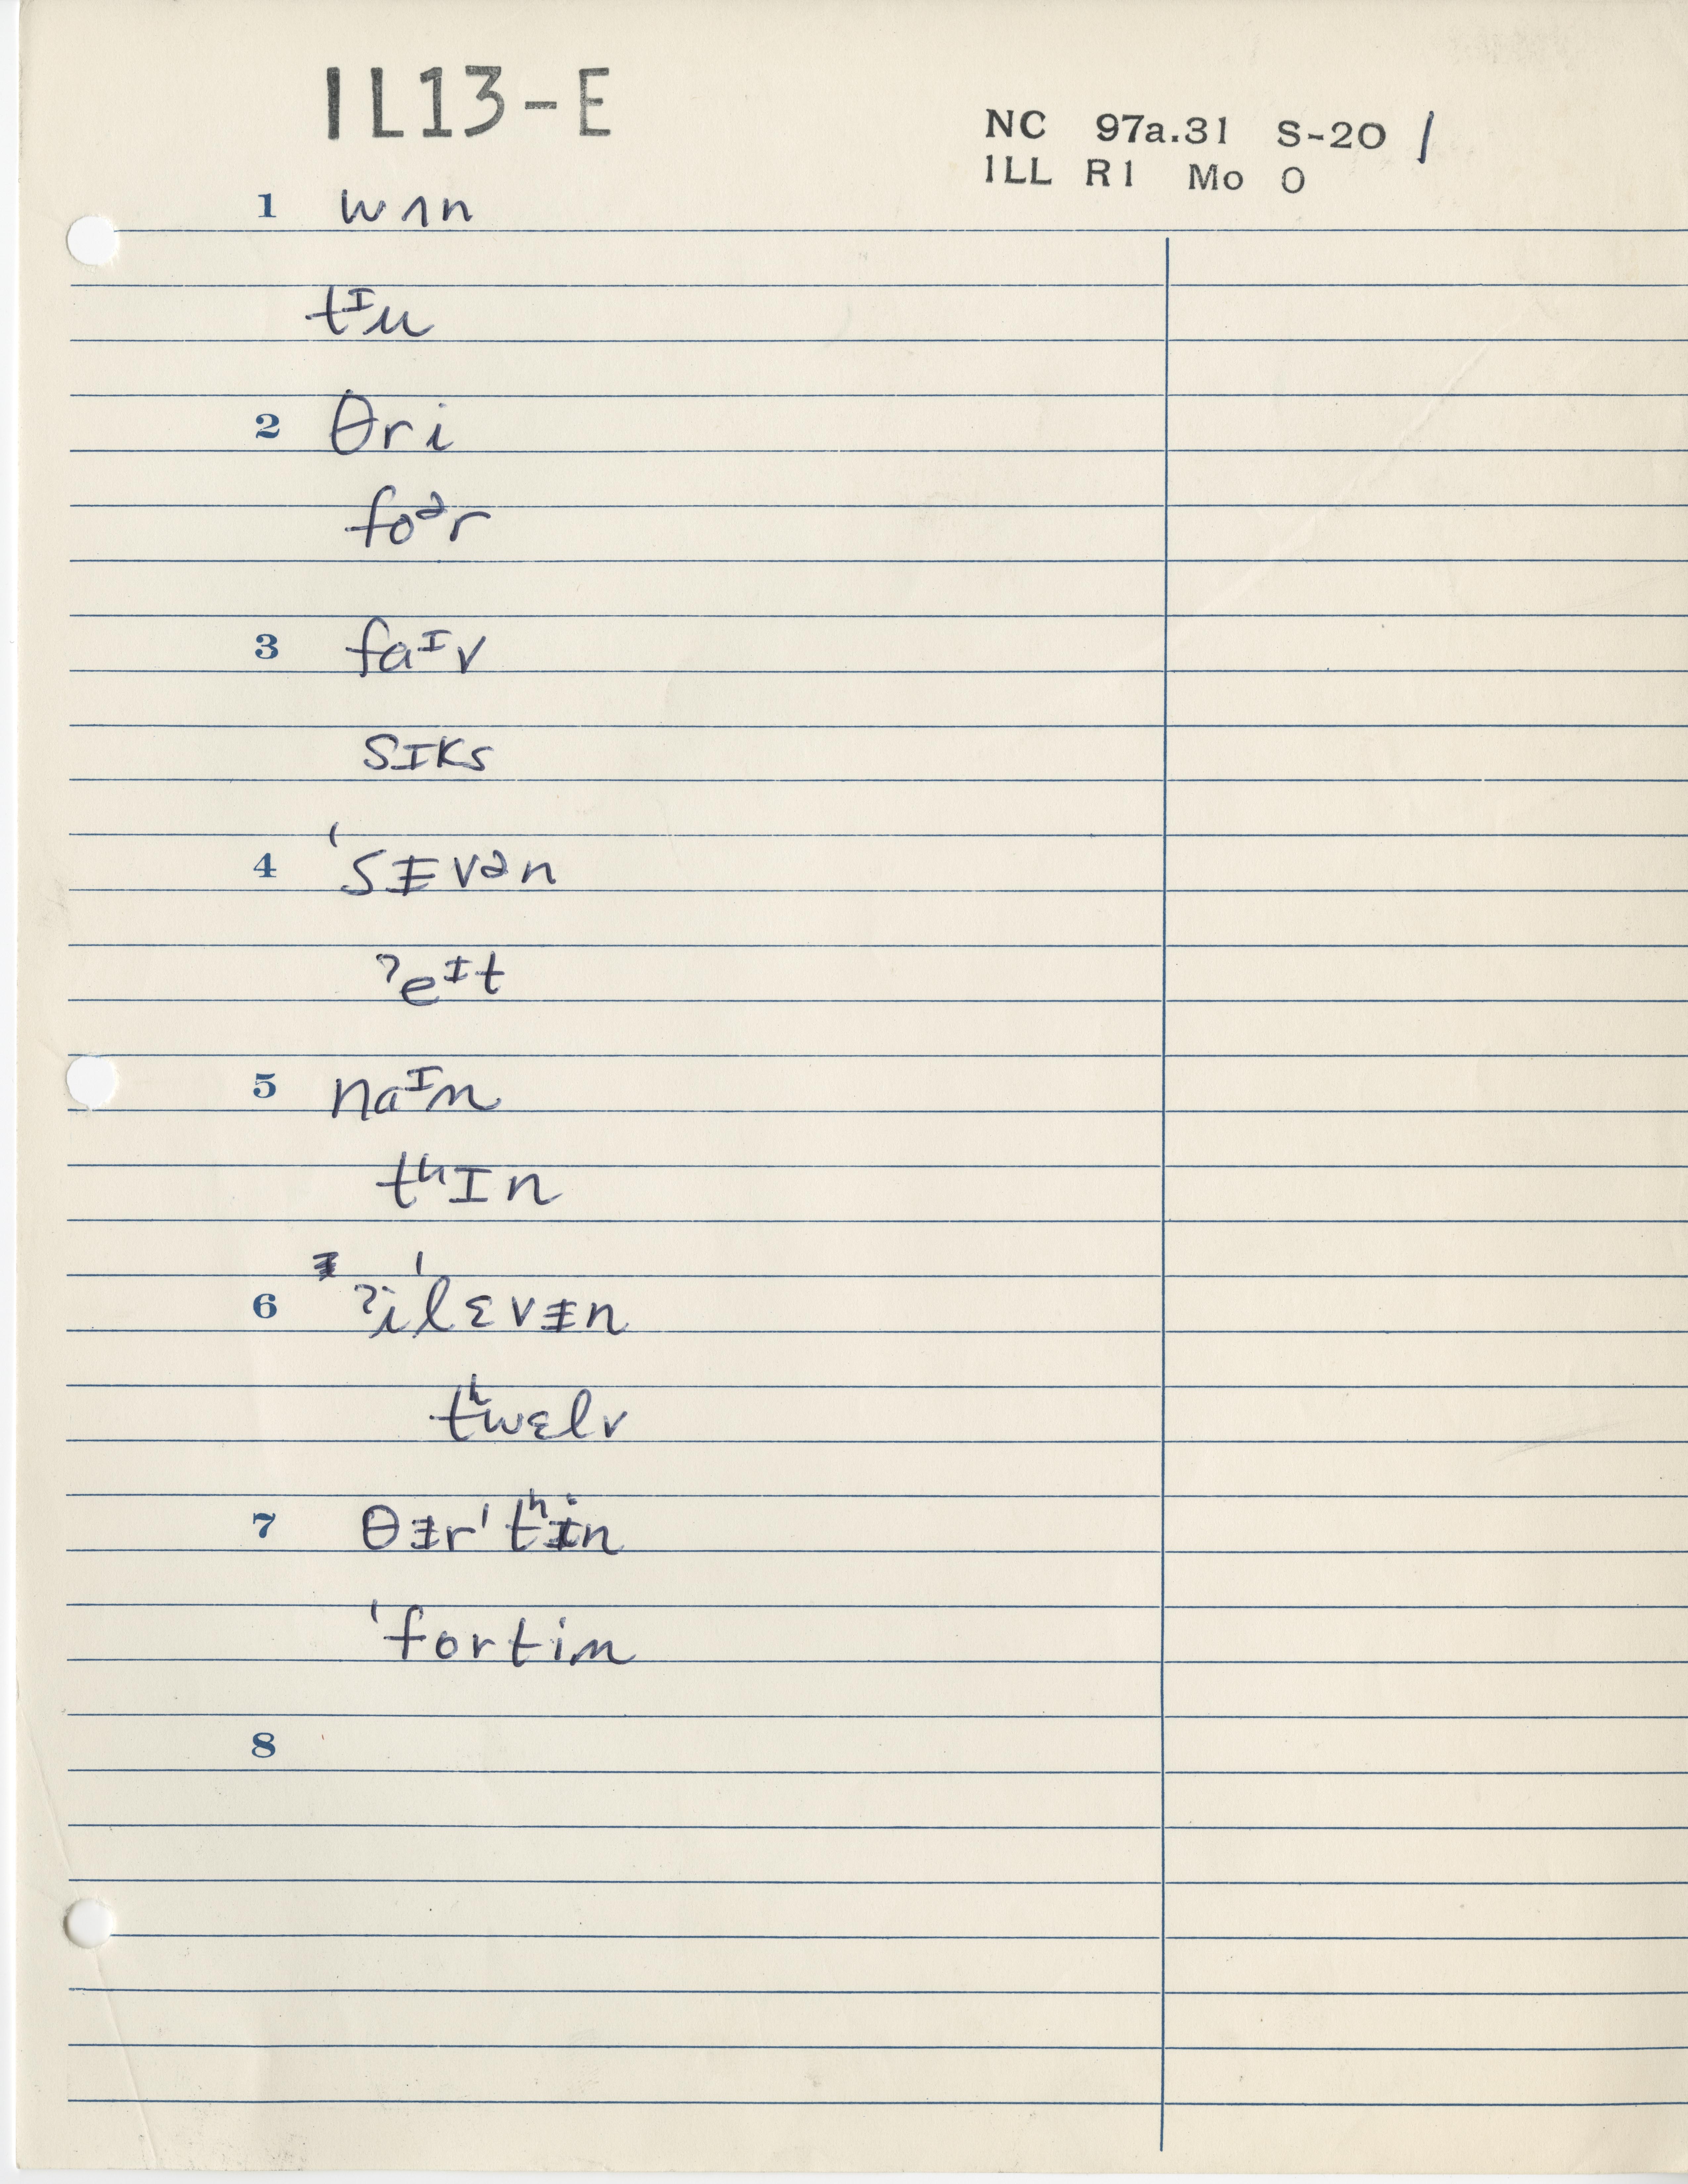 IL13-E
NC 97a.31 S-20 /
ILL R1 Mo O
1 wʌn
tᶦu
2 θri
foᵊr
3 faᶦv
sɪks
4 ˈsᵻvən
ˀeᶦt
5 naᶦn
tʰɪn
6 ˀiˈlɛvᵻn
tʰwɛlv
7 θᵻrˈtʰin
ˈfortin
8